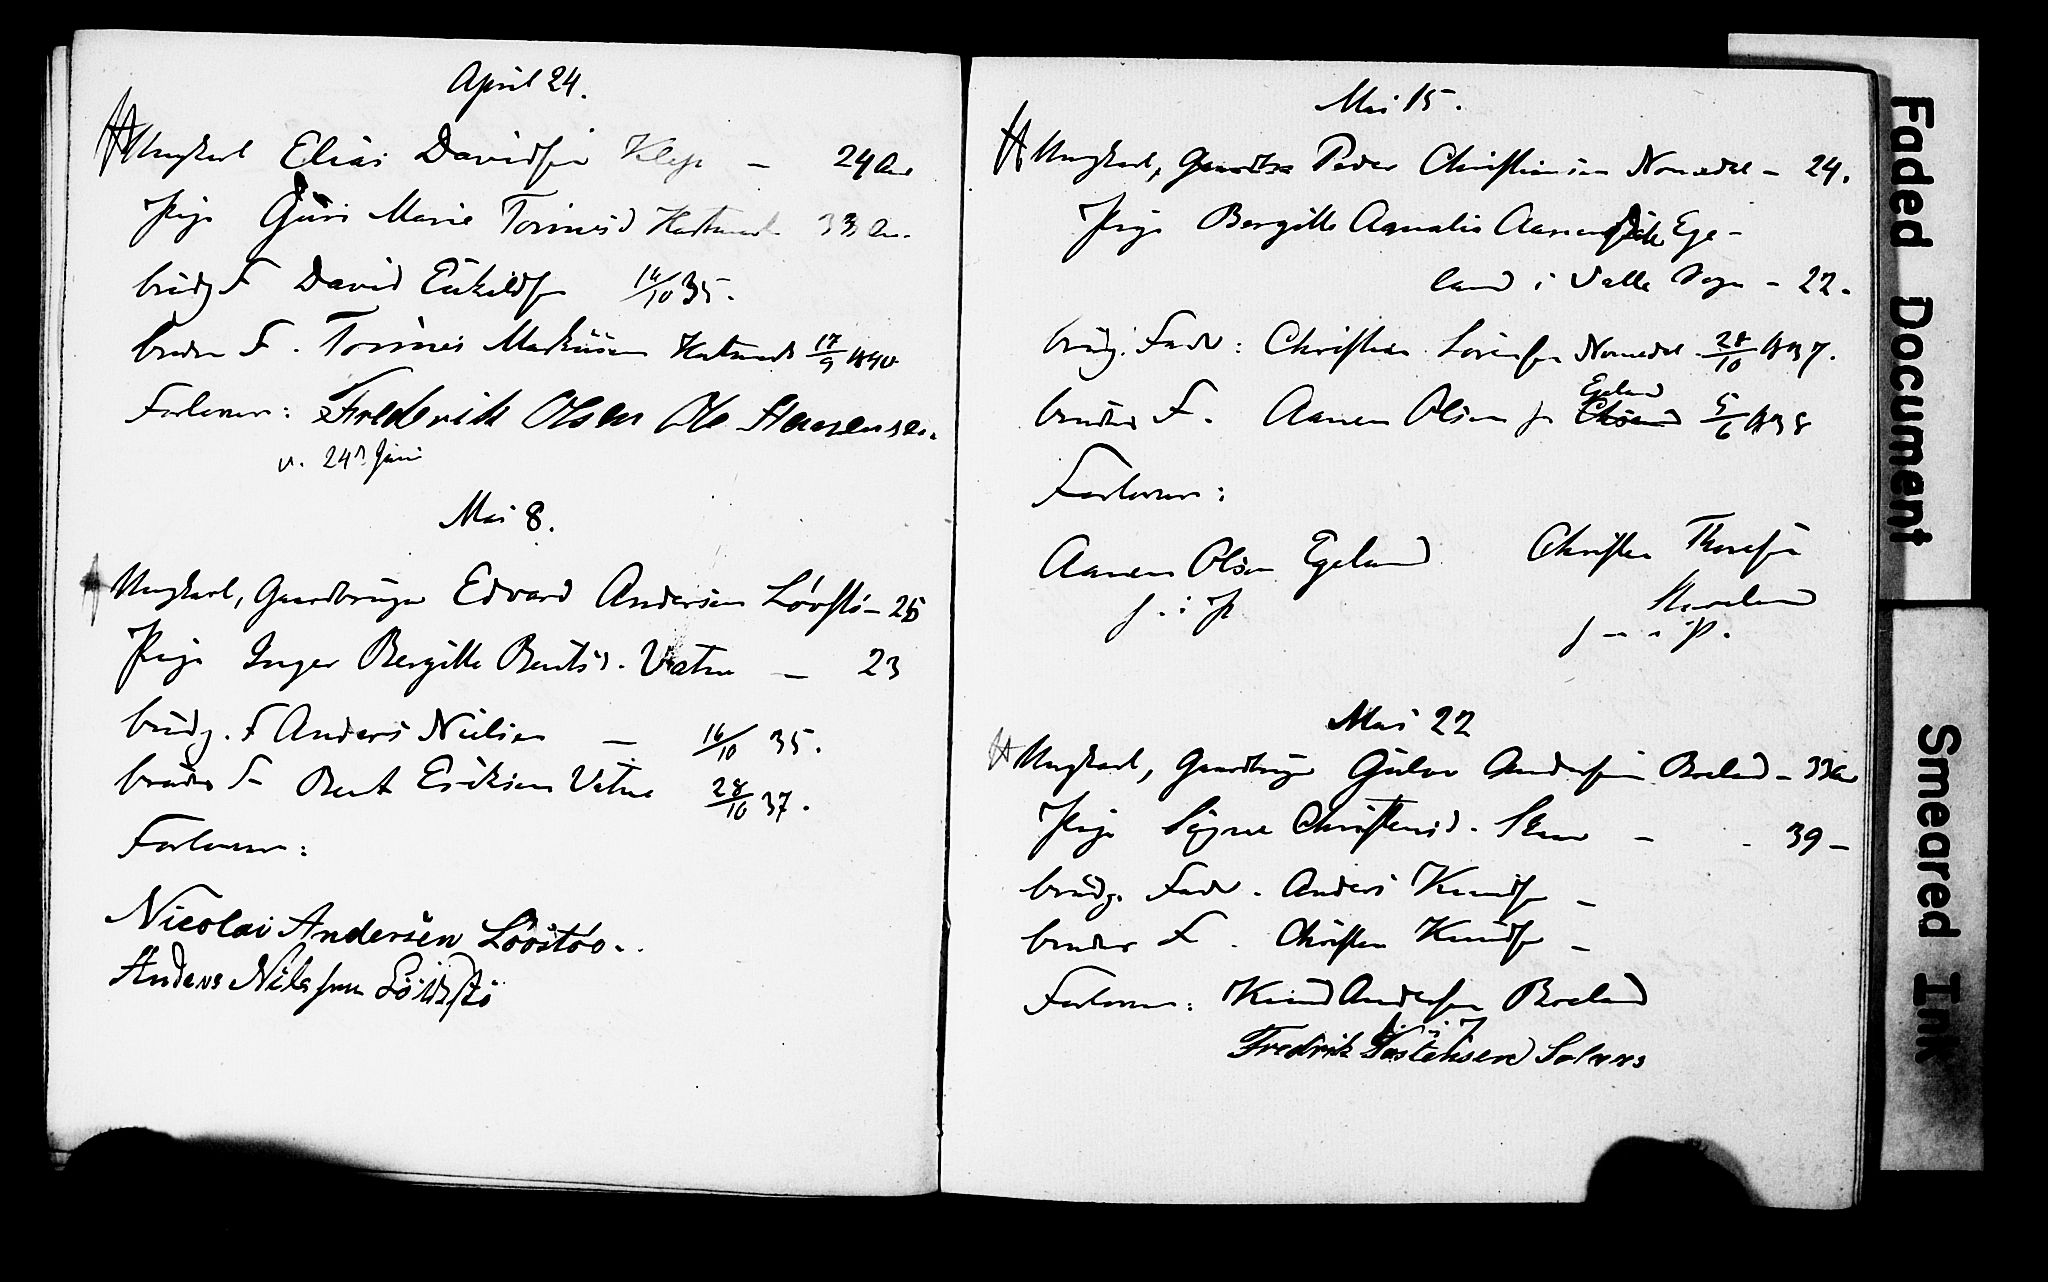 April 24.
Ungkarl Elias Davidsen Klep – 24 Aar
Pige Guri Marie Torinesd 33 Aar
brudg F David Eskildsen 16/10 35.
brudens F. Torines Markusen 17/9 1840
Forlovere: Frederik Olsen Ole Hansensen.
v. 24d Juni
Mai 8.
Ungkarl, Gaardbruger Edvard Andersen Løvstø – 25
Pige Inger Bergitte Bentsd. Vatne – 23
brudg. F Anders Nielsen – 16/10 35.
brudens F Bent Eriksen Vatne 28/10 37.
Forlovere:
Nicolai Andersen Lövstöv.
Anders Nilssen Lövstö
Mai 15.
Ungkarl, Peder Christiansen Nomedal – 24.
Pige Bergitte Aamalie Ege–
land i Valle Sogn – 22.
brudg. Fader: Christian Sørensen Nomedal 28/10 1837.
brudens F. Aanen Olsen Egeland 5/6 1838
Forlovere:
Aanen Olsen Egeland Christen Thorsen
m. i P. m. i P.
Mai 22
Ungkarl, Gaardbruger Gulov Andersen Broland – 33 Aar
Pige Signe Christensd. – 39 –
brudg. Fader. Anders Knudsen –
brudens F. Christen Knudsen –
Forlovere: Knud Andersen Broland
Fredrik Tostensen Solaas
Faded Document
Smeared Ink